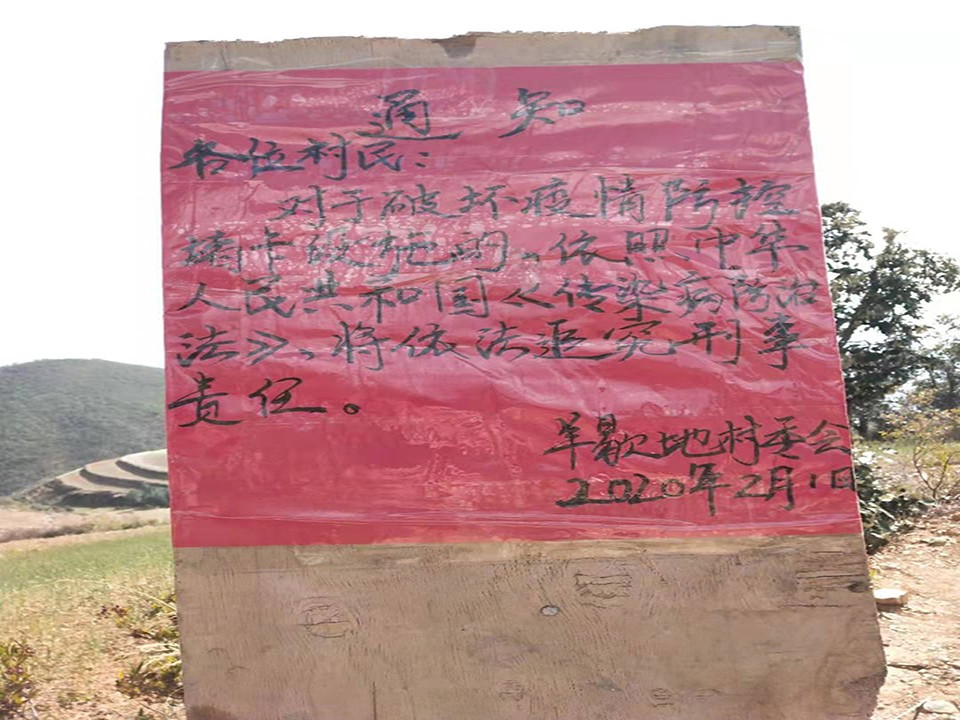 通知
各位村民：
对于破坏疫情防控
堵卡设施的、依照中华
人民共和国《传染病防治
法》、将依法追究刑事
责任。
羊歇地村委会
2020年2月1日